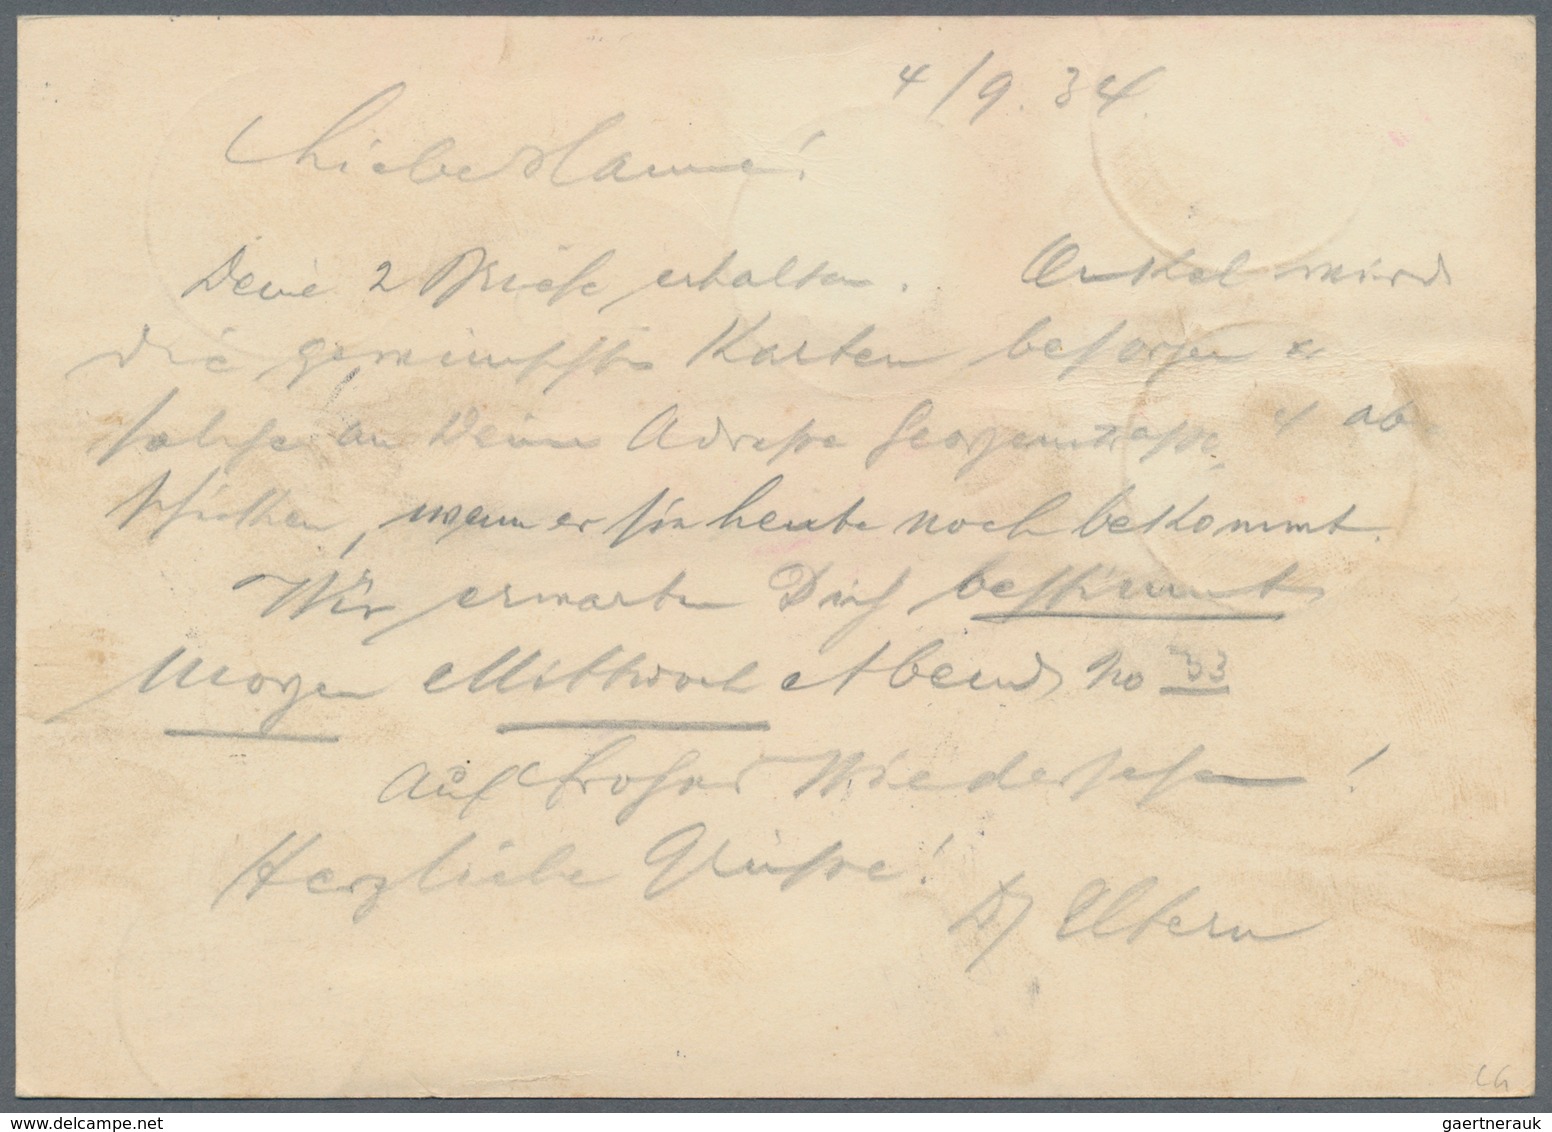 4/9. 34
Liebe Hanne!
Deine 2 Briefe erhalten. Onkel wird
die gewünschten Karten besorgen &
solche an Deine Adresse Georgenstrasse 4 ab-
schicken, wenn er sie heute noch bekommt.
Wir erwarten Dich bestimmt
Morgen Mittwoch Abend No 33
Auf frohes Wiedersehen!
Herzliche Grüsse!
D/ Eltern
gaertnerauk@delcampe.net